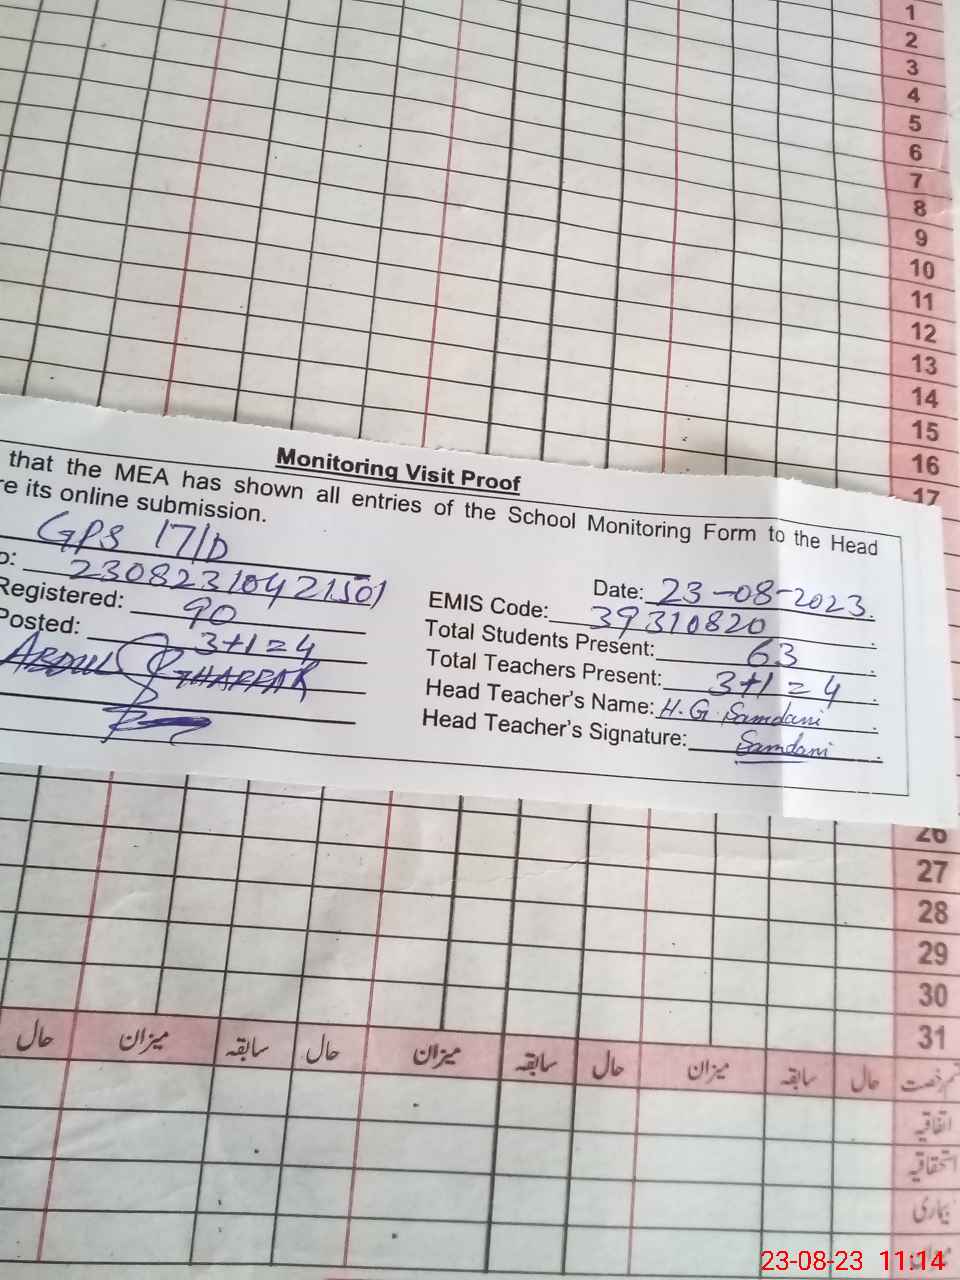 1
2
3
4
5
6
7
8
9
10
11
12
13
14
15
16
17
Monitoring Visit Proof
that the MEA has shown all entries of the School Monitoring Form to the Head
re its online submission.
GPS 17/D
Date: 23-08-2023.
o: 23082310421501
EMIS Code: 39310820
Registered: 90
Total Students Present: 63
Posted: 3+1=4
Total Teachers Present: 3+1=4
ABDUL
Head Teacher's Name: H.G. Samdani
Head Teacher's Signature: Samdani
26
27
28
29
30
31
حال سابقہ میزان حال سابقہ میزان حال سابقہ میزان حال
اتفاقیہ
استحقاقیہ
بیماری
23-08-23 11:14